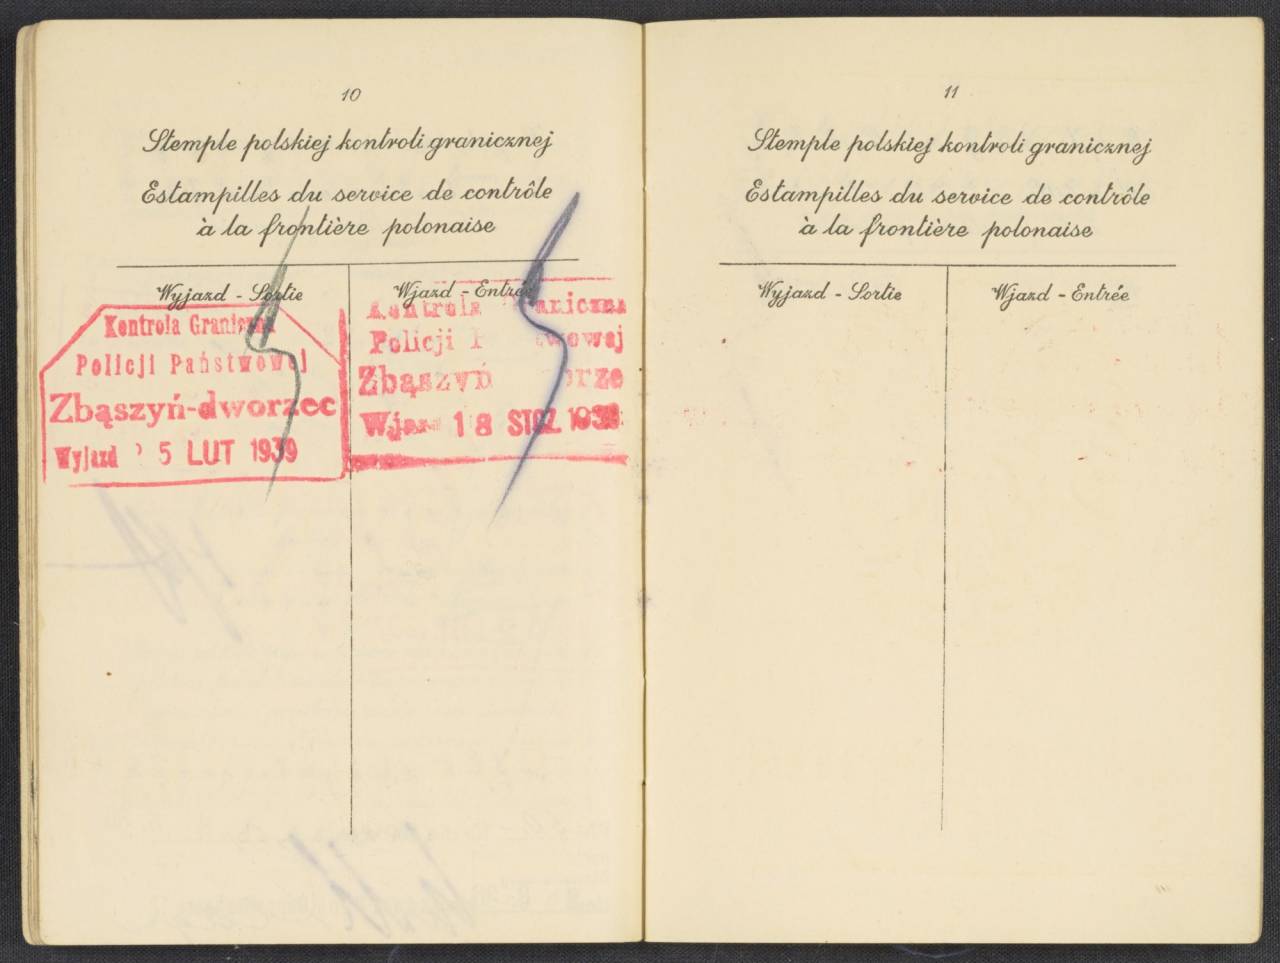 10
Stemple polskiej kontroli granicznej
Estampilles du service de contrôle
à la frontière polonaise
Wyjazd - Sortie
Wjazd - Entrée
Kontrola Graniczna
Policji Państwowej
Zbąszyń-dworzec
Wyjazd 5 LUT 1939
Kontrola Graniczna
Policji
Zbąszyń
18 STYCZ. 1939
11
Stemple polskiej kontroli granicznej
Estampilles du service de contrôle
à la frontière polonaise
Wyjazd - Sortie
Wjazd - Entrée